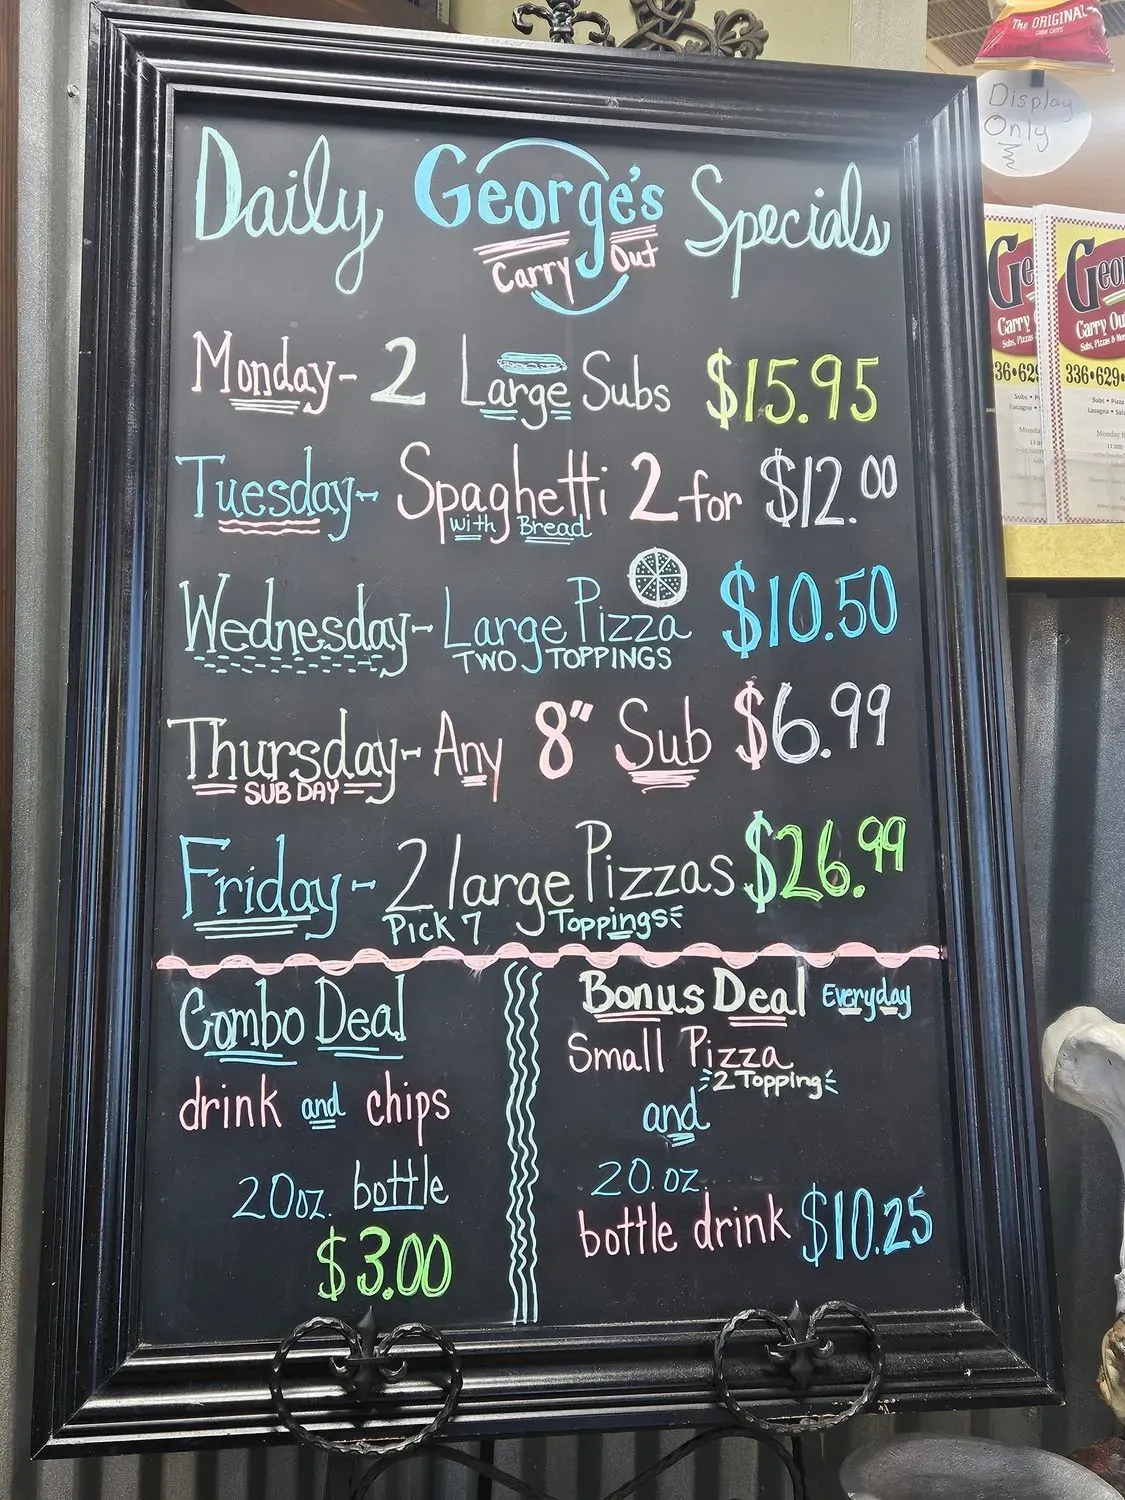 Daily George's Specials
Carry Out
Monday- 2 Large Subs $15.95
Tuesday- Spaghetti 2 for $12.00
with Bread
Wednesday- Large Pizza $10.50
TWO TOPPINGS
Thursday- Any 8" Sub $6.99
SUB DAY
Friday- 2 large Pizzas $26.99
Pick 7 Toppings
Combo Deal
drink and chips
20oz. bottle
$3.00
Bonus Deal Everyday
Small Pizza
2 Topping
and
20.oz.
bottle drink $10.25
The ORIGINAL
CORN CHIPS
Display
Only
Ge
Carry
Subs, Pizzas
36•629
Geor
Carry Ou
Subs, Pizzas & Mor
336•629•